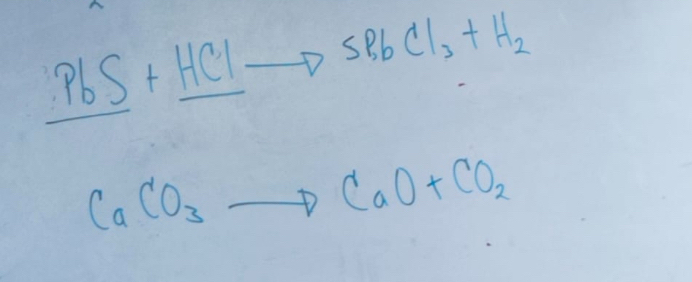 PbS + HCl → SPbCl₃ + H₂
CaCO₃ → CaO + CO₂